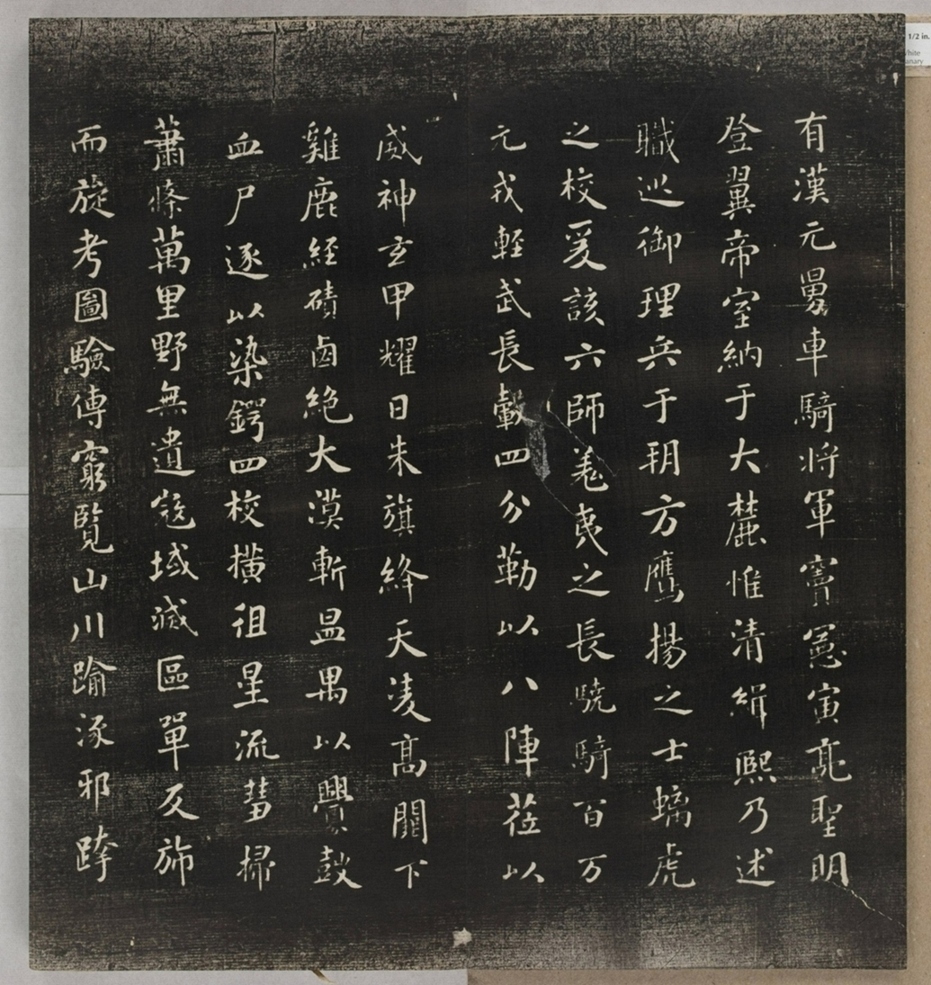 有漢元舅車騎将軍竇憲寅亮聖明
登翼帝室納于大麓惟清緝熙乃述
職巡御理兵于朔方鷹揚之士螭虎
之校爰該六師羗夷之長驍騎百万
元戎輕武長轂四分勒以八陣莅以
威神玄甲耀日朱旗絳天凌高闕下
雞鹿経磧鹵絶大漠斬昷禺以釁鼓
血尸逐以染鍔四校橫徂星流彗掃
蕭條萬里野無遺寇域滅區單反斾
而旋考圖驗傳窮覽山川踰涿邪跨
1/2 in.